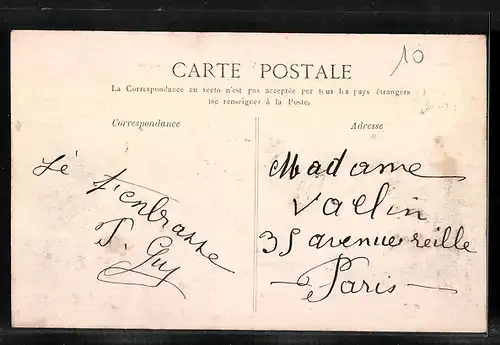 10
CARTE POSTALE
La Correspondance au recto n'est pas acceptée par tous les pays étrangers
(se renseigner à la Poste)
Correspondance
Adresse
Je t'enbrasse
T. Guy
Madame
Vallin
35 avenue reille
Paris